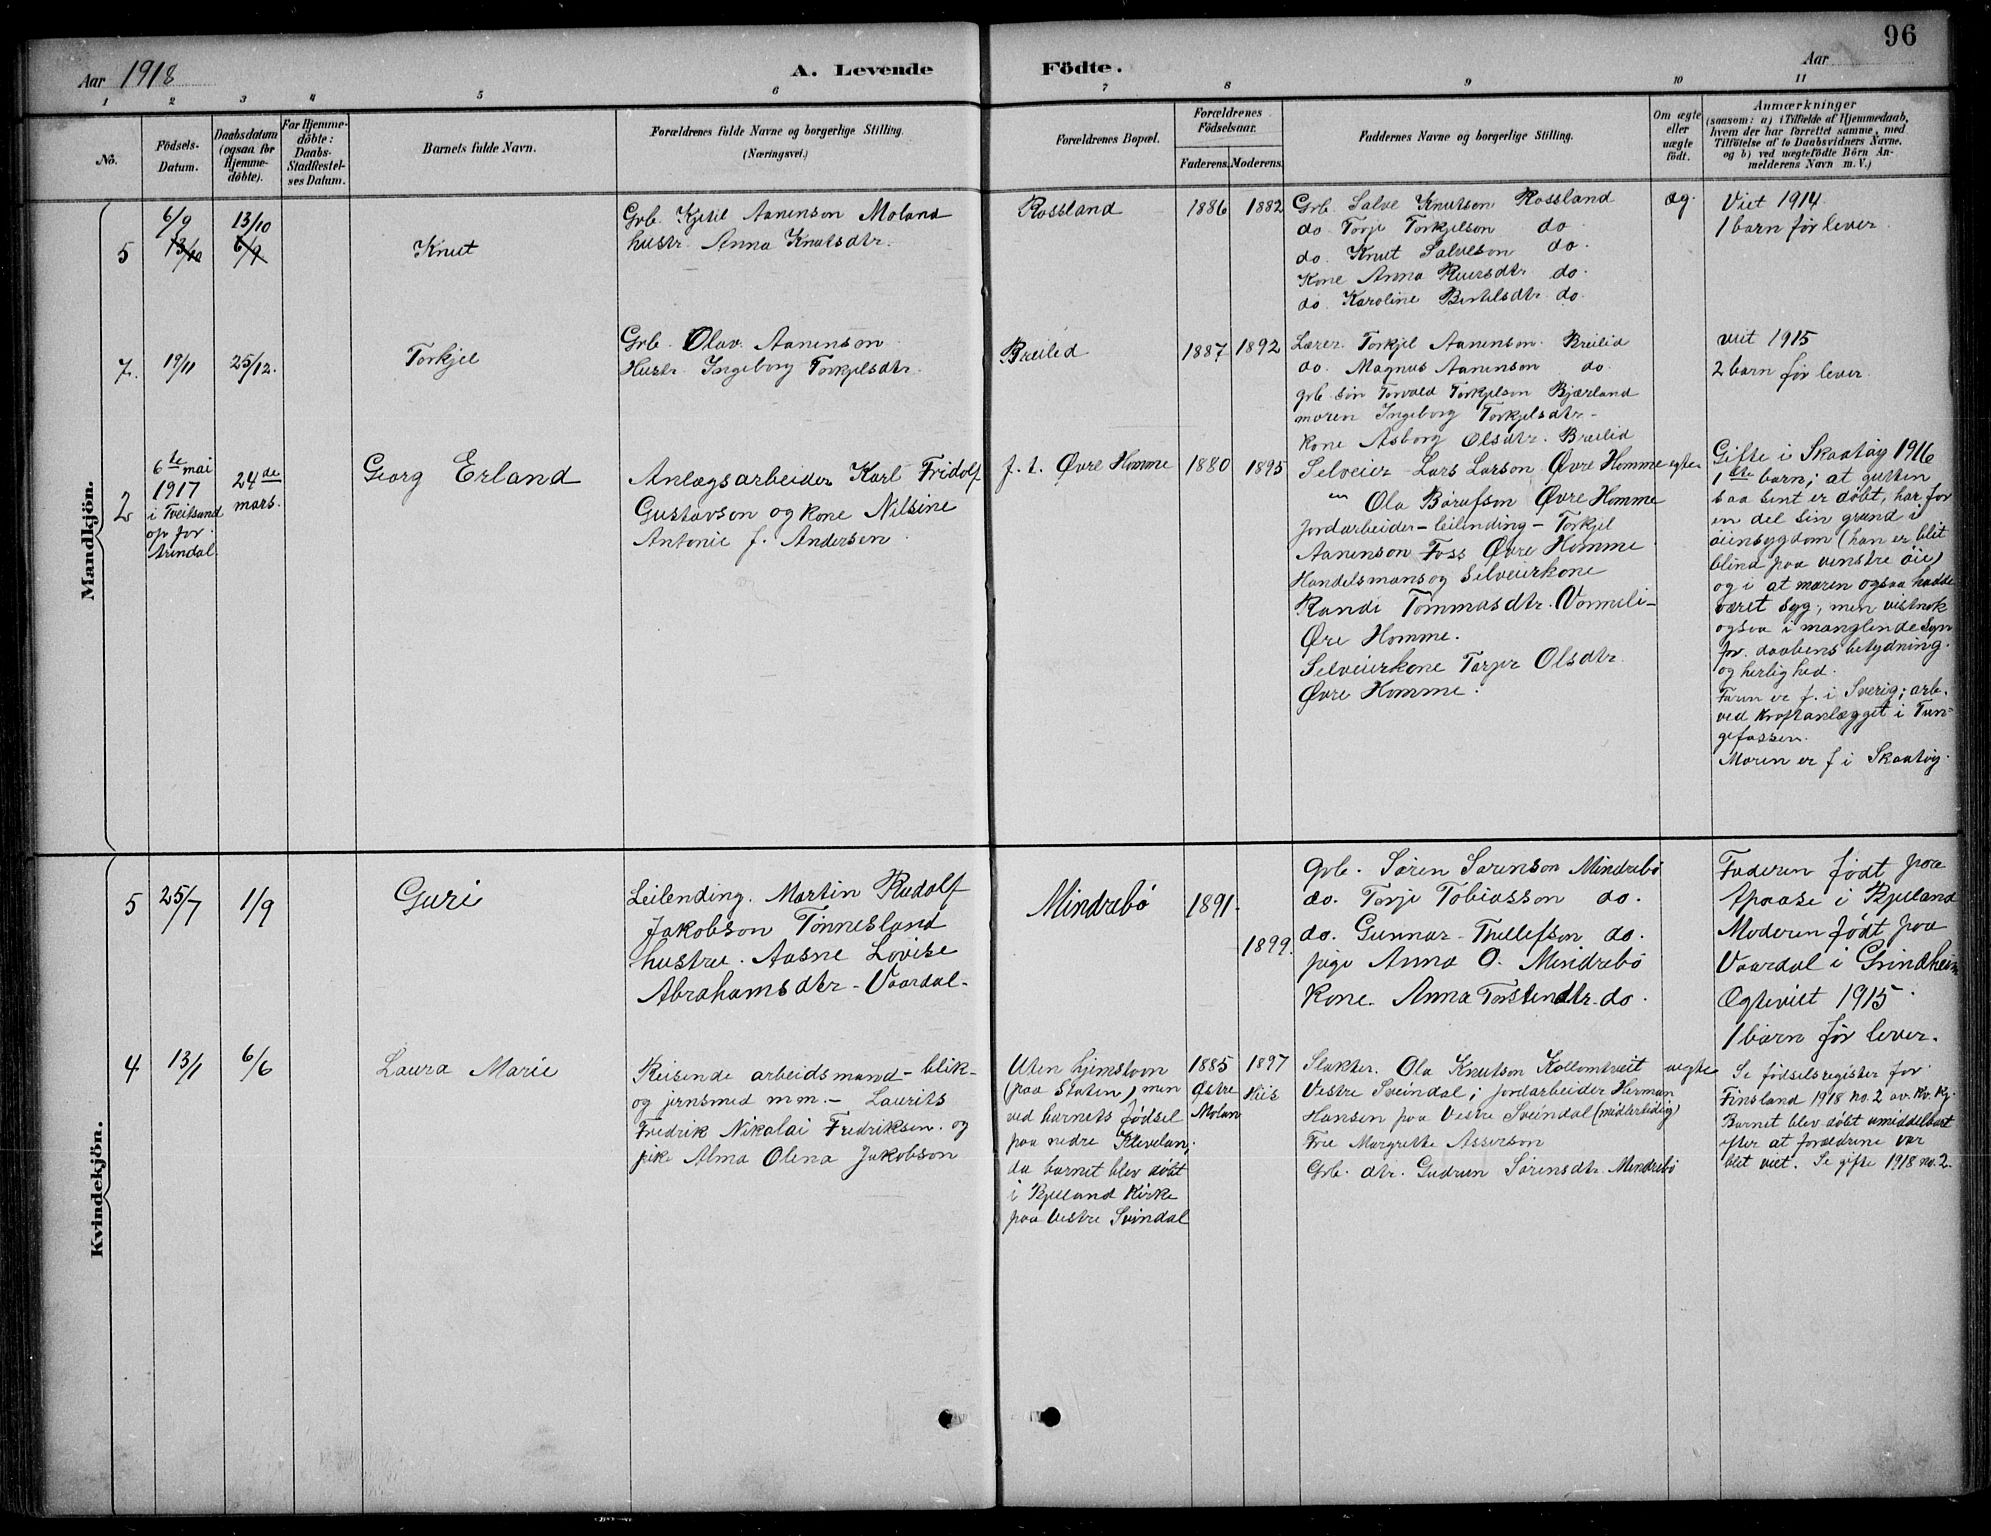 96
Aar 1918
A. Levende Födte.
Aar
1 2 3 4 5 6 7 8 9 10 11
No.
Födsels-Datum.
Daabsdatum (ogsaa for Hjemme-döbte).
For Hjemme-döbte: Daabs-Stadfæstel-ses Datum.
Barnets fulde Navn.
Forældrenes fulde Navne og borgerlige Stilling.
(Næringsvei.)
Forældrenes Bopæl.
Forældrenes Födselsaar.
Faderens. Moderens.
Faddernes Navne og borgerlige Stilling.
Om ægte eller uægte født.
Anmærkninger
(saasom: a) i Tilfælde af Hjemmedaab,
hvem der har forrettet samme, med
Tilföielse af to Daabsvidners Navne,
og b) ved uægtefödte Börn An-
melderens Navn m. V.)
Mandkjön.
5
6/9 13/10
13/10 6/9
Knut
Grb. Kjetil Aanenson Moland
hustr. Anna Knutsdtr.
Rossland
1886 1882
Grb. Salve Knutson Rossland
do. Torje Torkjelson do.
do. Knut Salveson do.
Kone Anna Reiersdtr do.
do. Karoline Bertilsdtr do.
æg.
Viet 1914
1 barn før lever.
7.
19/11 25/12.
Torkjel
Grb. Olav Aanenson
Hustr. Ingeborg Torkjelsdtr.
Breilid
1887 1892
Lærer Torkjel Aanenson Breilid
do. Magnus Aanenson do.
grb. søn Torvald Torkjelson Bjærland
moren Ingeborg Torkjelsdtr-
kone Asborg Olsdtr. Breilid
viet 1915
2 barn før lever.
2
6te mai
1917
i Tveitsund
op for
Arendal
24de
mars.
Georg Erland
Anlægsarbeider Karl Fridolf
Gustavson og kone Nilsine
Antonie f. Andersen.
f. t. Øvre Homme
1880 1895
Selveier Lars Larson Øvre Homme
" Ola Bårufson Øvre Homme
Jordarbeider-leilending-Torkjel
Aanenson Foss Øvre Homme
Handelsmans og Selveierkone
Randi Tommasdtr. Vormeli-
Øre Homme.
Selveierkone Torjer Olsdtr.
Øvre Homme.
egte
Gifte i Skaatøy 1916
1ste barn; at gutten
saa sent er døbt, har for
en del sin grund i
øiensygdom (han er blit
blind paa venstre øie)
og i at moren ogsaa hadde
været syg, men vistnok
ogsaa i manglende Syn
for daabens betydning
og herlighed.
Faren er f. i Sverig; arb.
ved kraftanlægget i Tun-
gefossen.
Moren er f i Skaatøy.
Kvindekjön.
5
25/7 1/9
Guri
Leilending. Martin Rudolf
Jakobson Tønnesland
hustru. Aasne Lovise
Abrahamsdtr-Vaardal-
Mindrebø
1891.
1899.
Grb. Søren Sørenson Mindrebø
do. Torje Tobiasson do.
do. Gunnar Thellefson do.
pige Anna O. Mindrebø
Kone. Anna Torstendtr do.
Faderen født paa
Apaase i Bjelland
Moderen født paa
Vaardal i Grindheim
Ægteviet 1915.
1 barn før lever.
4
13/1 6/6
Laura Marie
Reisende arbeidsmand - blik-
og jernsmed m.m. - Laurits
Fredrik Nikolai Fredriksen. og
pike Alma Olena Jakobson
Uten hjemstavn
(paa Staten), men
ved barnets fødsel
paa nedre Klevelan;
da barnet blev døbt
i Bjelland Kirke
paa Vestre Svindal
1885 1897
Østre
Molan
Slakter. Ola Knutson Kollomtveit
Vestre Sveindal; Jordarbeider Herman
Hansen paa Vestre Sveindal (midlertidig)
Frie Margrethe Asserson
Grb. dtr. Gudrun Sørensdtr. Mindrebø
uegte
Se fødselsregister for
Finsland 1918 no. 2 av kv. kj.
Barnet blev døbt umiddelbart
efter at forældrene var
blit viet. Se gifte 1918 no. 2.